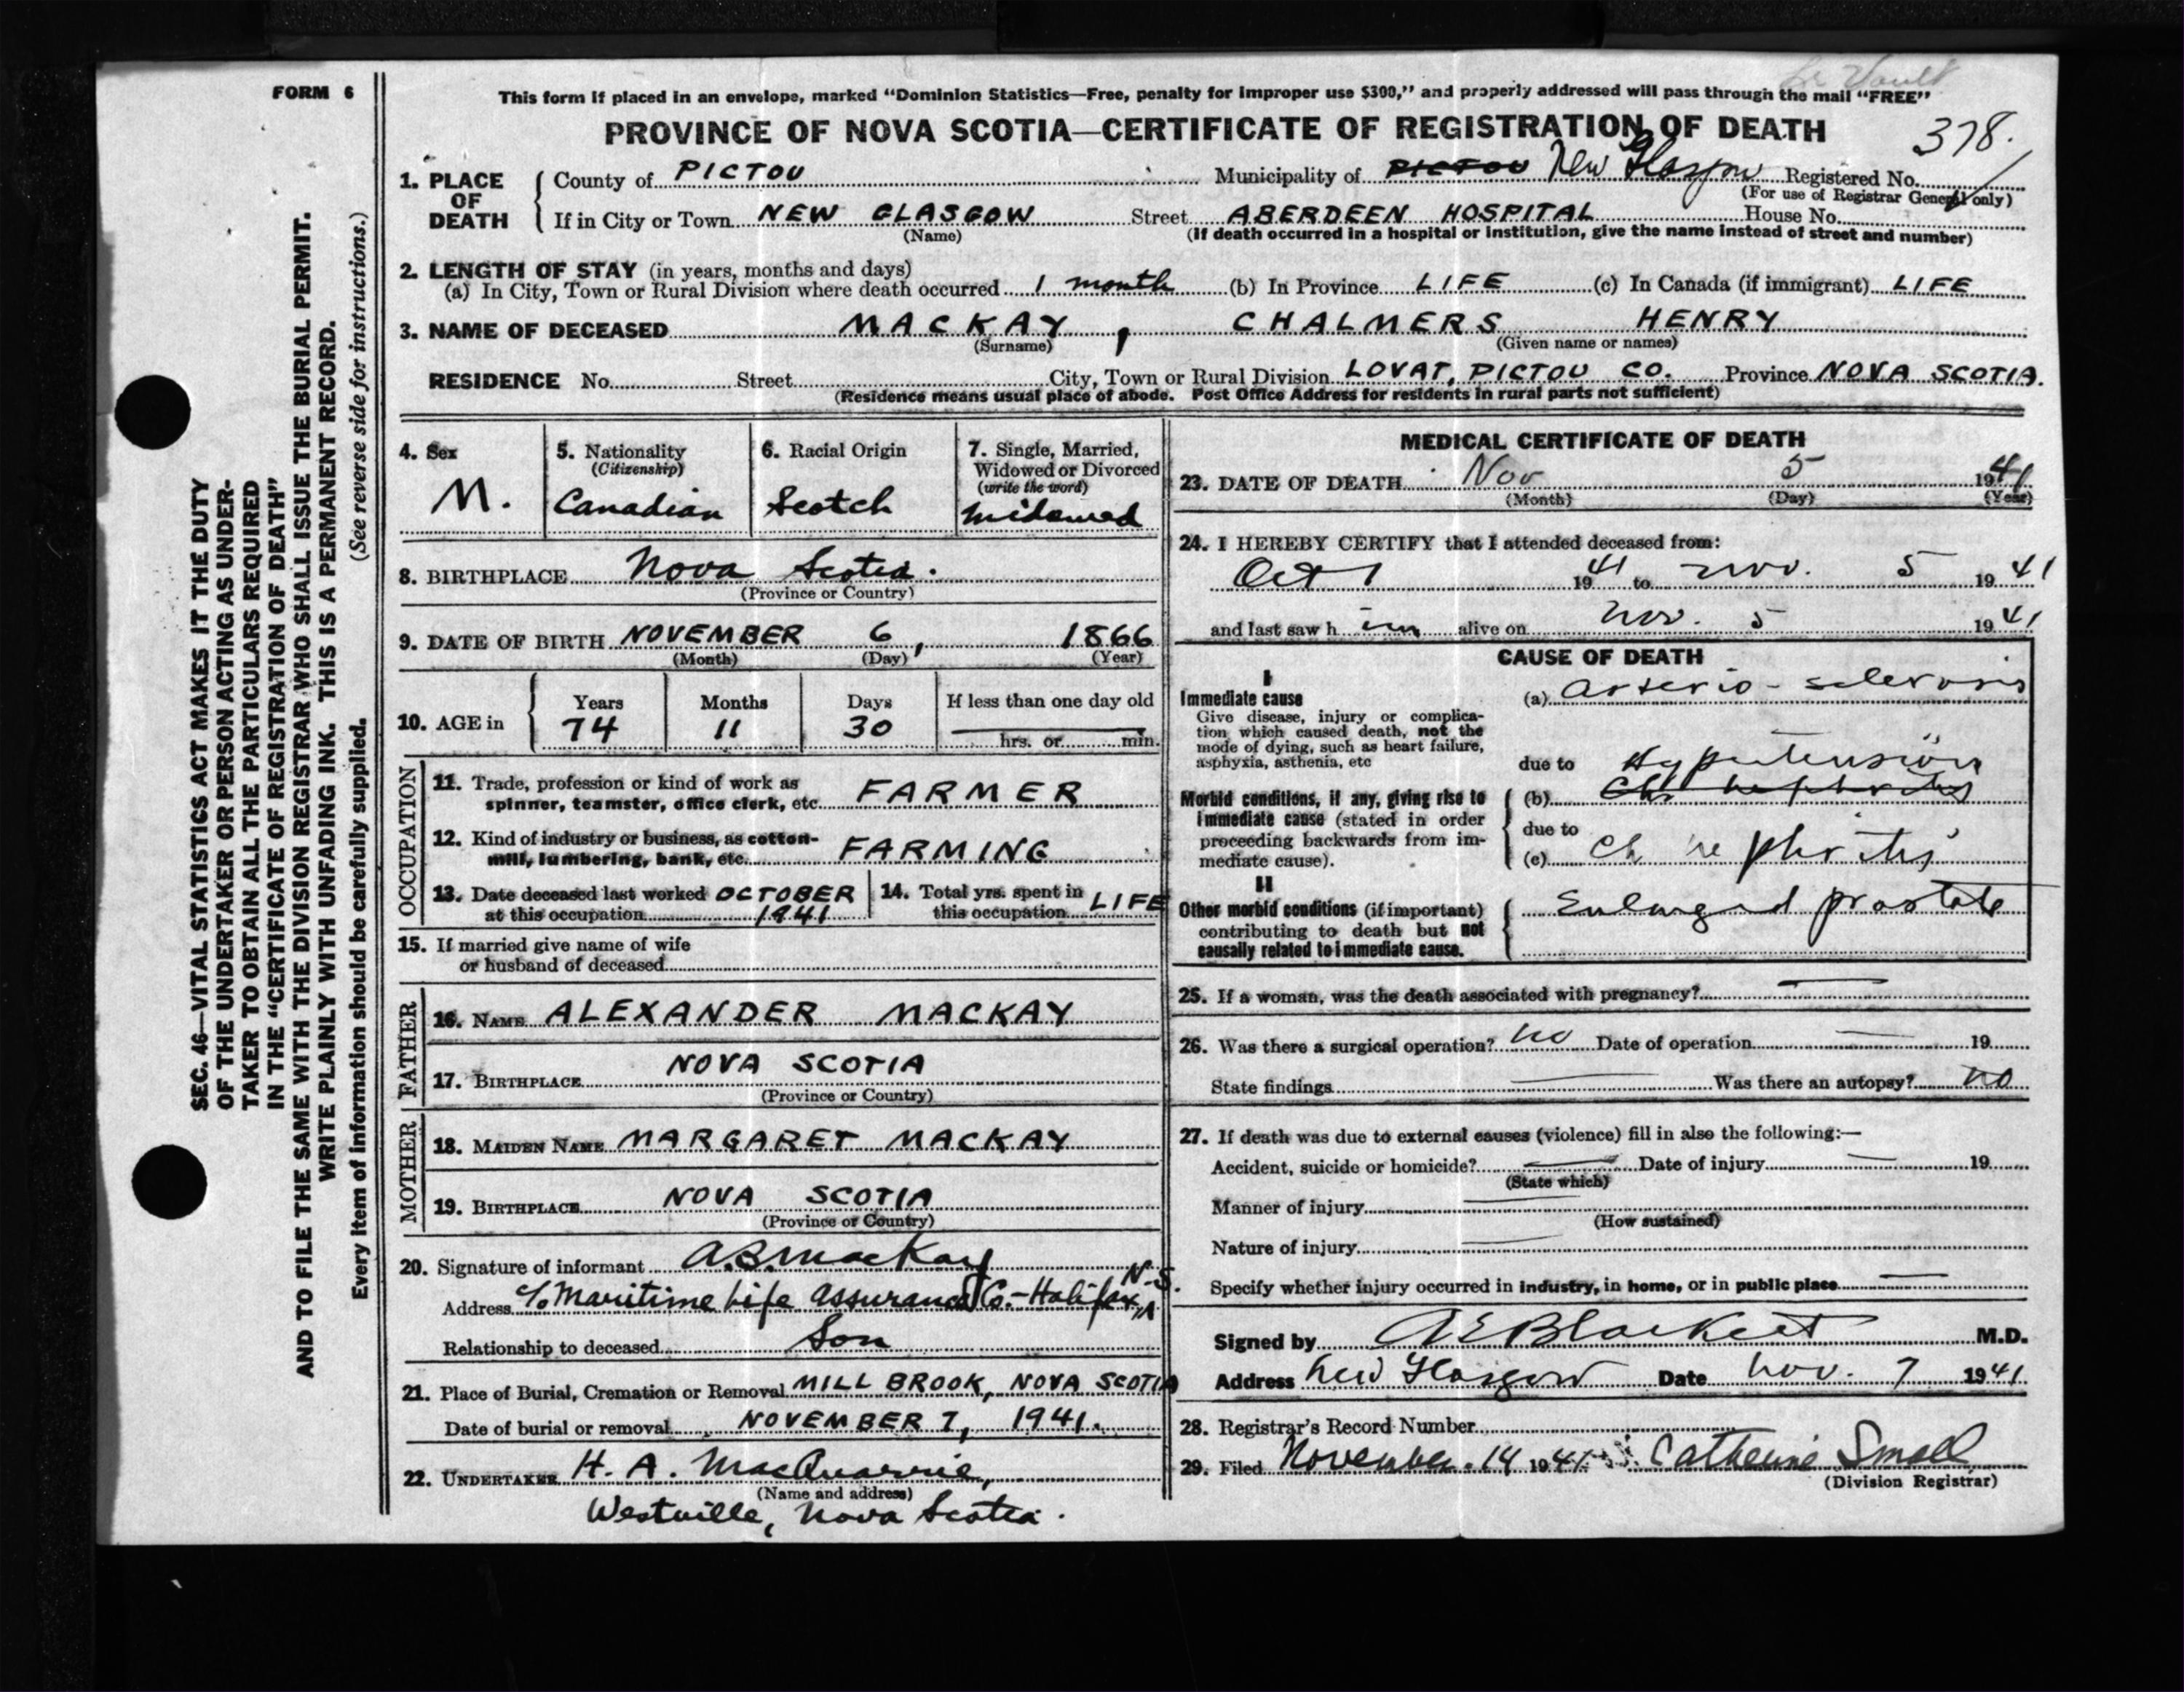 FORM 6
This form if placed in an envelope, marked "Dominion Statistics—Free, penalty for improper use $300," and properly addressed will pass through the mail "FREE"
PROVINCE OF NOVA SCOTIA—CERTIFICATE OF REGISTRATION OF DEATH
378.
1. PLACE OF DEATH
County of PICTOU Municipality of PICTOU New Glasgow Registered No.
(For use of Registrar General only)
If in City or Town NEW GLASGOW Street ABERDEEN HOSPITAL House No.
(Name) (If death occurred in a hospital or institution, give the name instead of street and number)
2. LENGTH OF STAY (in years, months and days)
(a) In City, Town or Rural Division where death occurred 1 month (b) In Province LIFE (c) In Canada (if immigrant) LIFE
3. NAME OF DECEASED MACKAY, CHALMERS HENRY
(Surname) (Given name or names)
RESIDENCE No. Street City, Town or Rural Division LOVAT, PICTOU CO. Province NOVA SCOTIA.
(Residence means usual place of abode. Post Office Address for residents in rural parts not sufficient)
4. Sex
M.
5. Nationality
(Citizenship)
Canadian
6. Racial Origin
Scotch
7. Single, Married,
Widowed or Divorced
(write the word)
Widowed
8. BIRTHPLACE Nova Scotia.
(Province or Country)
9. DATE OF BIRTH NOVEMBER 6, 1866
(Month) (Day) (Year)
10. AGE in
Years Months Days If less than one day old
74 11 30
hrs. or min.
OCCUPATION
11. Trade, profession or kind of work as
spinner, teamster, office clerk, etc. FARMER
12. Kind of industry or business, as cotton-
mill, lumbering, bank, etc. FARMING
13. Date deceased last worked OCTOBER
at this occupation 1941
14. Total yrs. spent in
this occupation LIFE
15. If married give name of wife
or husband of deceased
FATHER
16. NAME ALEXANDER MACKAY
17. BIRTHPLACE NOVA SCOTIA
(Province or Country)
MOTHER
18. MAIDEN NAME MARGARET MACKAY
19. BIRTHPLACE NOVA SCOTIA
(Province or Country)
20. Signature of informant A.B. MacKay
Address c/o Maritime Life Assurance Co.-Halifax, N.S.
Relationship to deceased Son
21. Place of Burial, Cremation or Removal MILL BROOK, NOVA SCOTIA
Date of burial or removal NOVEMBER 7, 1941.
22. UNDERTAKER H. A. MacQuarrie,
(Name and address)
Westville, Nova Scotia.
MEDICAL CERTIFICATE OF DEATH
23. DATE OF DEATH Nov 5 1941
(Month) (Day) (Year)
24. I HEREBY CERTIFY that I attended deceased from:
Oct 1 1941 to Nov. 5 1941
and last saw h im alive on Nov. 5 1941
CAUSE OF DEATH
I
Immediate cause
Give disease, injury or complica-
tion which caused death, not the
mode of dying, such as heart failure,
asphyxia, asthenia, etc
(a) Arterio-sclerosis
due to Hypertension
Morbid conditions, if any, giving rise to
immediate cause (stated in order
proceeding backwards from im-
mediate cause).
(b) Chr nephritis
due to
(c) Ch nephritis
II
Other morbid conditions (if important)
contributing to death but not
causally related to immediate cause.
Enlarged prostate
25. If a woman, was the death associated with pregnancy? —
26. Was there a surgical operation? no Date of operation — 19
State findings — Was there an autopsy? no
27. If death was due to external causes (violence) fill in also the following:—
Accident, suicide or homicide? — Date of injury — 19
(State which)
Manner of injury —
(How sustained)
Nature of injury —
Specify whether injury occurred in industry, in home, or in public place —
Signed by A E Blackett M.D.
Address New Glasgow Date Nov. 7 1941
28. Registrar's Record Number
29. Filed November. 14 1941 Catherine Small
(Division Registrar)
SEC. 46—VITAL STATISTICS ACT MAKES IT THE DUTY
OF THE UNDERTAKER OR PERSON ACTING AS UNDER-
TAKER TO OBTAIN ALL THE PARTICULARS REQUIRED
IN THE "CERTIFICATE OF REGISTRATION OF DEATH"
AND TO FILE THE SAME WITH THE DIVISION REGISTRAR WHO SHALL ISSUE THE BURIAL PERMIT.
WRITE PLAINLY WITH UNFADING INK. THIS IS A PERMANENT RECORD.
Every item of information should be carefully supplied. (See reverse side for instructions.)